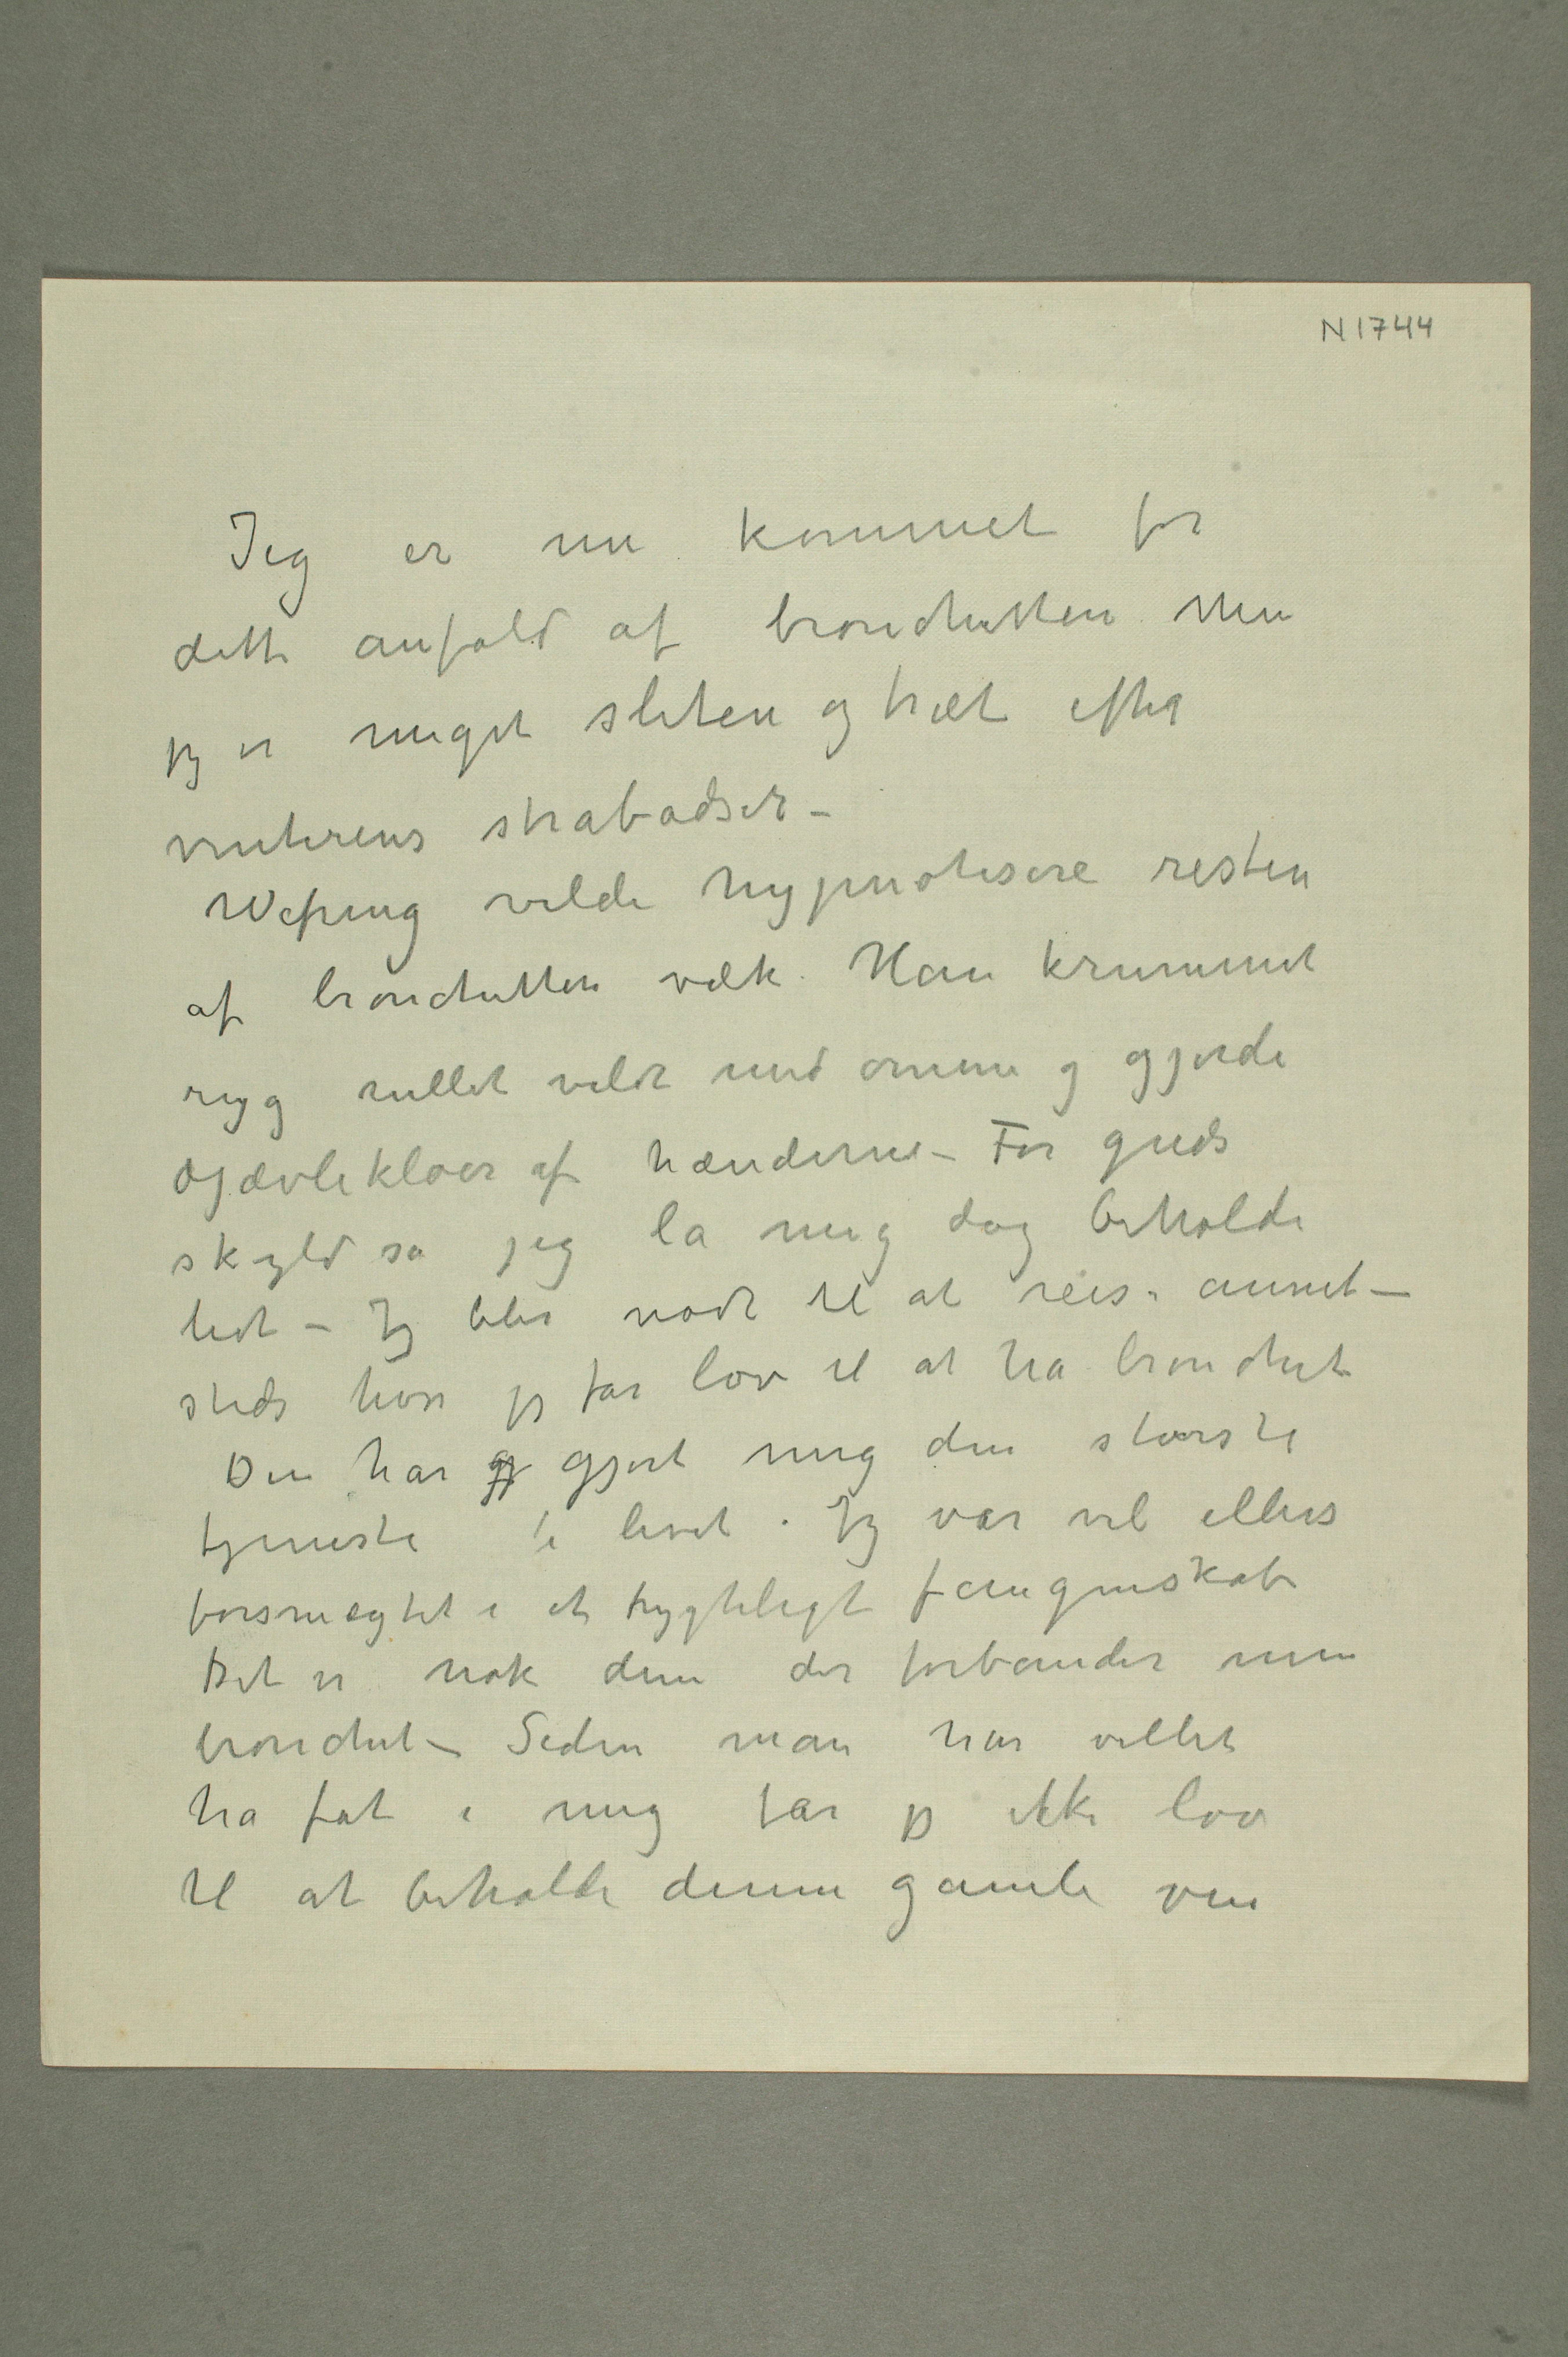 N 1744
Jeg er nu kommet for
dette anfald af bronchitten Men
jeg er meget sliten og træt efter
vinterens strabadser –
Wefring vilde hypnotisere resten
af bronchitten væk. Han krummet
ryg rullet vildt med øinene og gjorde
djævleklør af hænderne – For guds
skyld sa jeg la mig dog beholde
lidt – Jeg blir nødt til at reise annet–
steds hvor jeg får lov til at ha bronchit
Den har gj gjort mig den største
tjeneste i livet. Jeg var vel ellers
forsmægtet i et frygteligt fangenskab
Det er nok dem der forbander min
bronchit – Siden man har villet
ha fat i mig får jeg ikke lov
til at beholde denne gamle ven